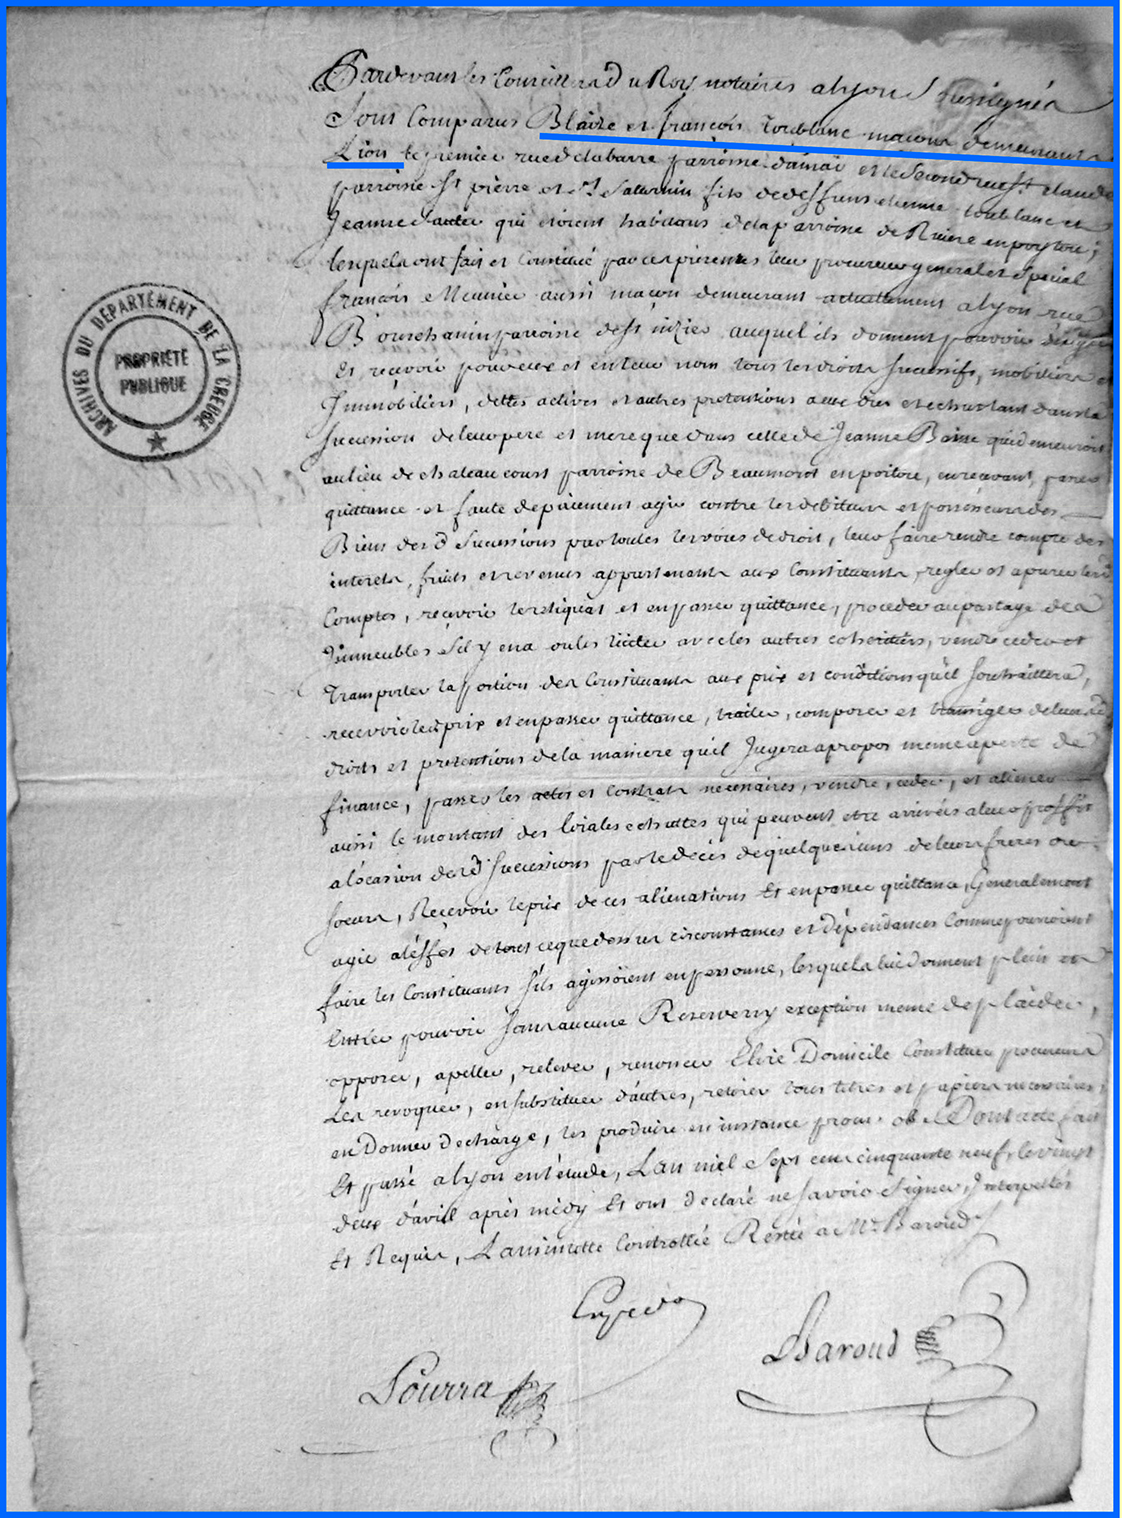 Pardevant les Conseillers du Roy notaires a lyon Soussignés
Sont Comparus Blaize et françois toublanc macons demeurants a
Lion le premier rue de la barre parroisse d'ainai et le Second rue St claude
parroisse St pierre et St Saturnin fils de deffuns etienne toublanc et
Jeanne qui etoient habitans de la parroisse de en poytou ;
lesquels ont fait et Constitué par ces presentes leur procureur general et Special
françois Meunier aussi macon demeurant actuellement a lyon rue
Bourchanin parroisse de St nizier auquel ils donnent pouvoir
Et recevoir pour eux et en leur nom tous les droits successifs, mobiliers et
Immobiliers, dettes actives et autres pretentions a eux dus et echus tant dans la
succession de leur pere et mere que dans celle de Jeanne qui demeuroit
au lieu de chateau court parroisse de Beaumont en poitou, en recevant, passer
quittance et faute de paiement agir contre les debiteurs et possesseurs des
Biens des d Successions par toutes les voies de droit, leur faire rendre compte des
interets, fruits et revenus appartenants aux Constituants, regler et apurer les d
Comptes, recevoir les reliquats et en passer quittance, proceder au partage des
Immeubles s'il y en a ou les liciter avec les autres coheritiers, vendre ceder et
Transporter la portion des Constituants aux prix et conditions qu'il souhaittera,
recevoir les prix et en passer quittance, traiter, composer et transiger de leurs d
droits et pretentions de la maniere qu'il Jugera apropos meme a perte de
finance, passer les actes et Contrats necessaires, vendre, ceder, et aliener
aussi le montant des loiales echuttes qui peuvent etre arrivées a leur proffit
a l'ocasion des d successions par le deces de quelques uns de leurs freres ou
soeurs, Recevoir le prix de ces alienations Et en passer quittance, Generalement
agir a l'effet de tout ce que dessus circonstances et dépendances Comme pourroient
faire les Constituants s'ils agissoient en personne, lesquels lui donnent plein et
Entier pouvoir sans aucune Reserve ny exception meme de plaider,
opposer, apeller, relever, renoncer Elire Domicile Constituer procureurs
Les revoquer, en substituer d'autres, retirer tous titres et papiers necessaires,
en Donner decharge, les produire en instance pour Dont acte fait
Et passé a lyon en l'étude, L'an mil Sept cent cinquante neuf, le vingt
deux d'avril après midy Et ont declaré ne savoir Signer, Interpellés
Et Requis, La minutte Controllée Restée a Me Baroud
Baroud
Pourra
ARCHIVES DU DÉPARTEMENT DE LA CREUSE
PROPRIÉTÉ
PUBLIQUE